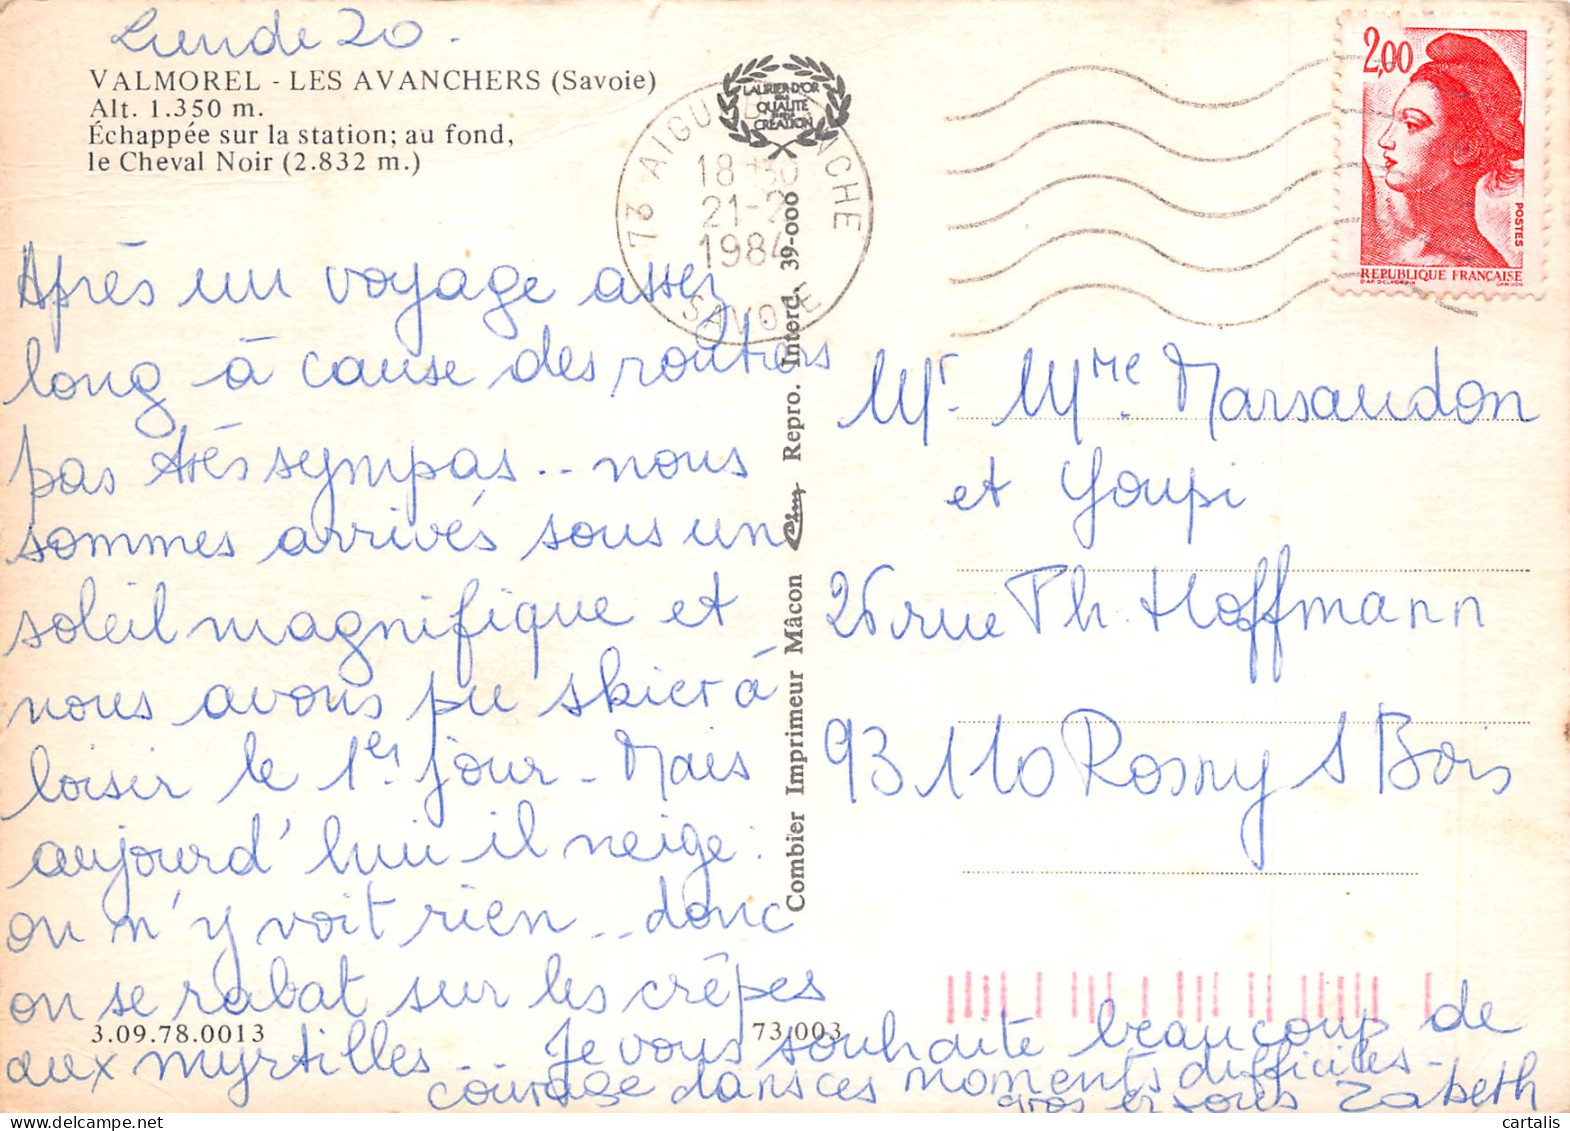 Lundi 20.
VALMOREL - LES AVANCHERS (Savoie)
Alt. 1.350 m.
Échappée sur la station; au fond,
le Cheval Noir (2.832 m.)
Après un voyage assez
long à cause des routiers
pas très sympas.. nous
sommes arrivés sous un
soleil magnifique et
nous avons pu skier à
loisir le 1er jour - Mais
aujourd'hui il neige:
on n'y voit rien... donc
on se rabat sur les crêpes
aux myrtilles.. Je vous souhaite beaucoup de
courage dans ces moments difficiles -
gros à vous Zabeth
3.09.78.0013
73.003
LAURIER D'OR
QUALITÉ
CRÉATION
73 AIGUEBLANCHE
18-30
21-2
1984
SAVOIE
Combier Imprimeur Mâcon Cim Repro. Interd. 39-000
2,00
POSTES
REPUBLIQUE FRANÇAISE
GANDON
Mr. Mme. Marsaudon
et Youpi
26 rue Ph. Hoffmann
93110 Rosny s Bois
cartalis
www.delcampe.net